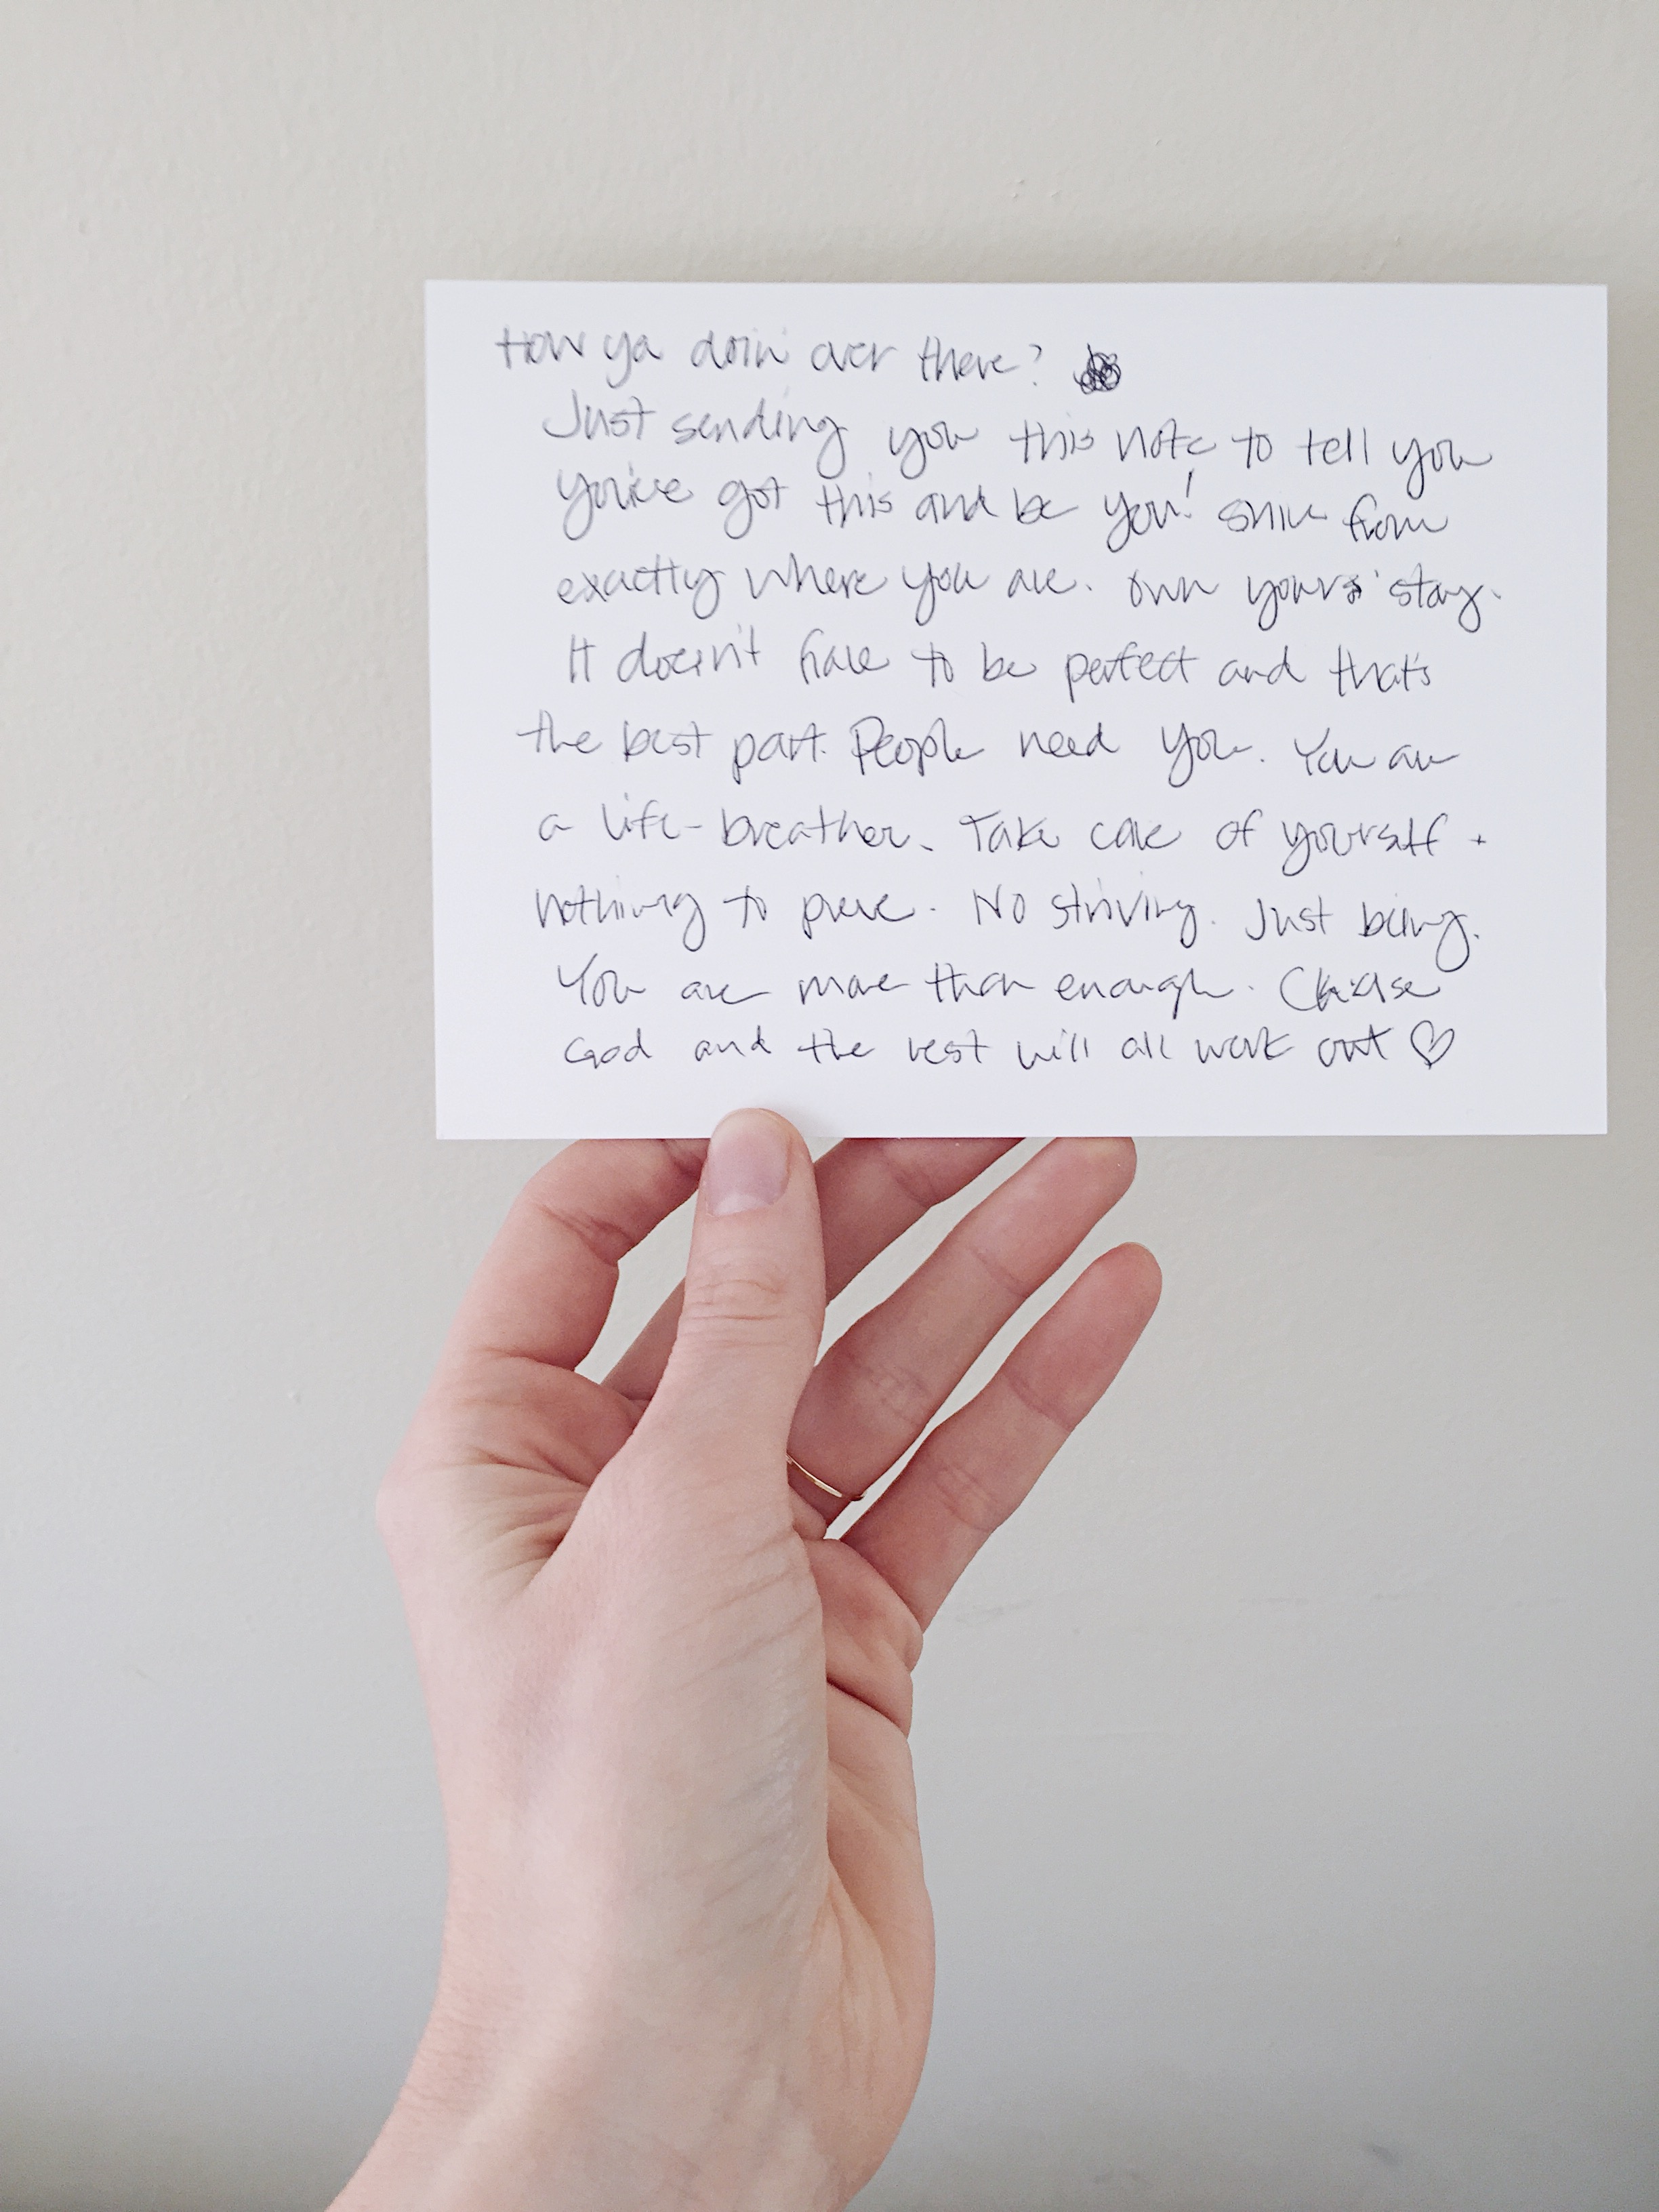 How ya doin' over there?
Just sending you this note to tell you
you've got this and be you! Shine from
exactly where you are. Own your story.
It doesn't have to be perfect and that's
the best part. People need you. You are
a life-breather. Take care of yourself +
nothing to prove. No striving. Just being.
You are more than enough. Chase
God and the rest will all work out ♡